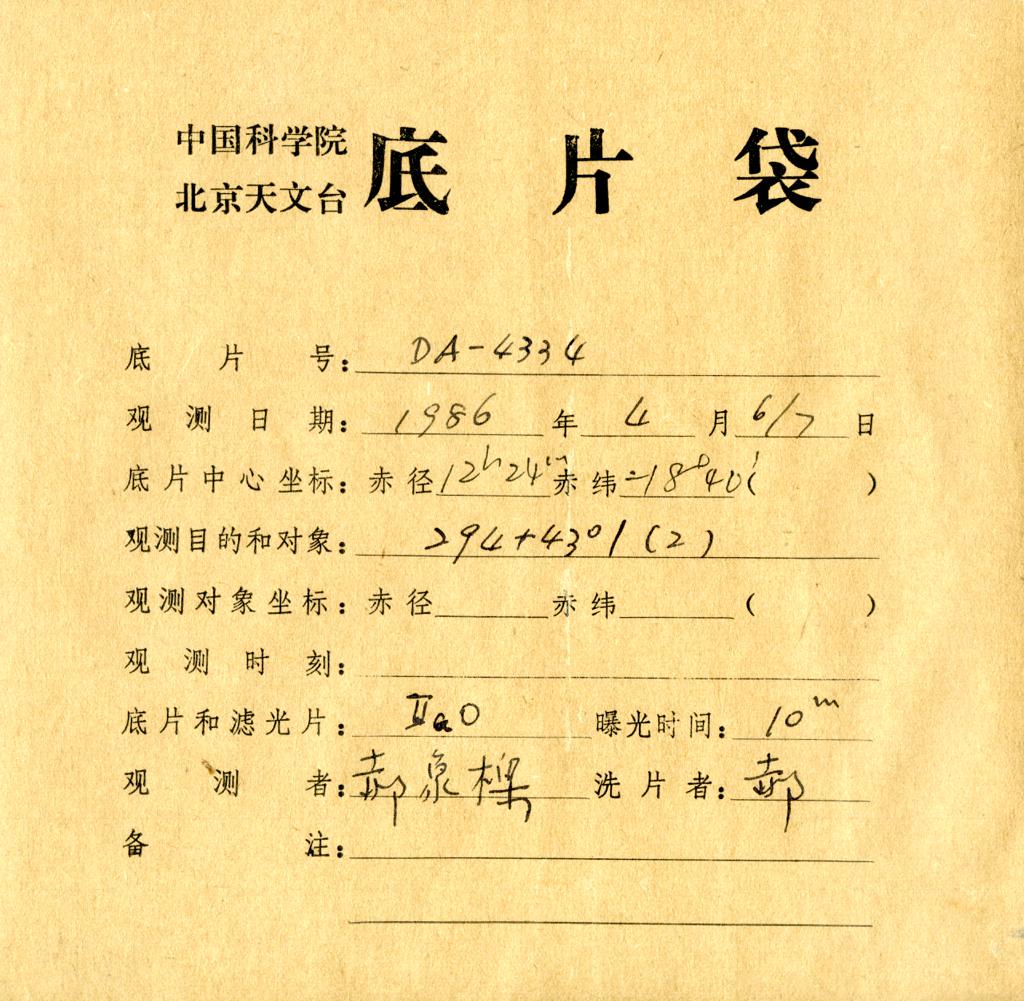 中国科学院
北京天文台 底片袋
底片号：DA-4334
观测日期：1986年4月6/7日
底片中心坐标：赤径12ʰ24ᵐ赤纬-18°40′(　)
观测目的和对象：294+43°1(2)
观测对象坐标：赤径 赤纬 (　)
观测时刻：
底片和滤光片：ⅡaO 曝光时间：10ᵐ
观测者：郝泉 洗片者：郝
备注：